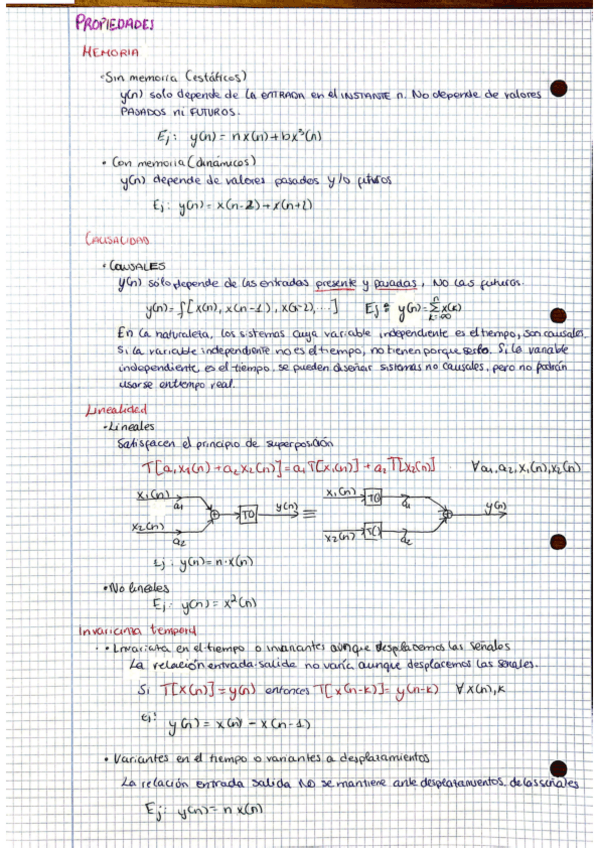 PROPIEDADES
MEMORIA
·Sin memoria (estáticos)
y(n) solo depende de la ENTRADA en el INSTANTE n. No depende de valores
PASADOS ni FUTUROS.
Ej: y(n) = nx(n)+bx³(n)
· Con memoria (dinámicos)
y(n) depende de valores pasados y/o futuros
Ej: y(n) = x(n-2)+x(n+2)
CAUSALIDAD
· CAUSALES
y(n) sólo depende de las entradas presente y pasadas, NO las futuras.
y(n)=f[x(n), x(n-1), x(n-2),...] Ej: y(n)=∑x(k)
n
k=-∞
En la naturaleza, los sistemas cuya variable independiente es el tiempo, son causales.
Si la variable independiente no es el tiempo, no tienen porque serlo. Si la variable
independiente es el tiempo, se pueden diseñar sistemas no causales, pero no podrán
usarse en tiempo real.
Linealidad
·Lineales
Satisfacen el principio de superposición
T[a₁x₁(n) + a₂x₂(n)] = a₁T[x₁(n)] + a₂T[x₂(n)] ∀a₁,a₂,x₁(n),x₂(n)
x₁(n) a₁ + T() y(n) ≡ x₁(n) T() a₁ + y(n)
x₂(n) a₂ x₂(n) T() a₂
Ej: y(n)=n·x(n)
·No lineales
Ej: y(n)=x²(n)
Invarianza temporal
·Invariata en el tiempo o invariantes aunque desplacemos las señales
La relación entrada-salida no varía aunque desplacemos las señales.
Si T[x(n)]=y(n) entonces T[x(n-k)]=y(n-k) ∀x(n),k
ej: y(n) = x(n) - x(n-1)
· Variantes en el tiempo o variantes a desplazamientos
La relación entrada salida NO se mantiene ante desplazamientos de las señales
Ej: y(n) = n x(n)